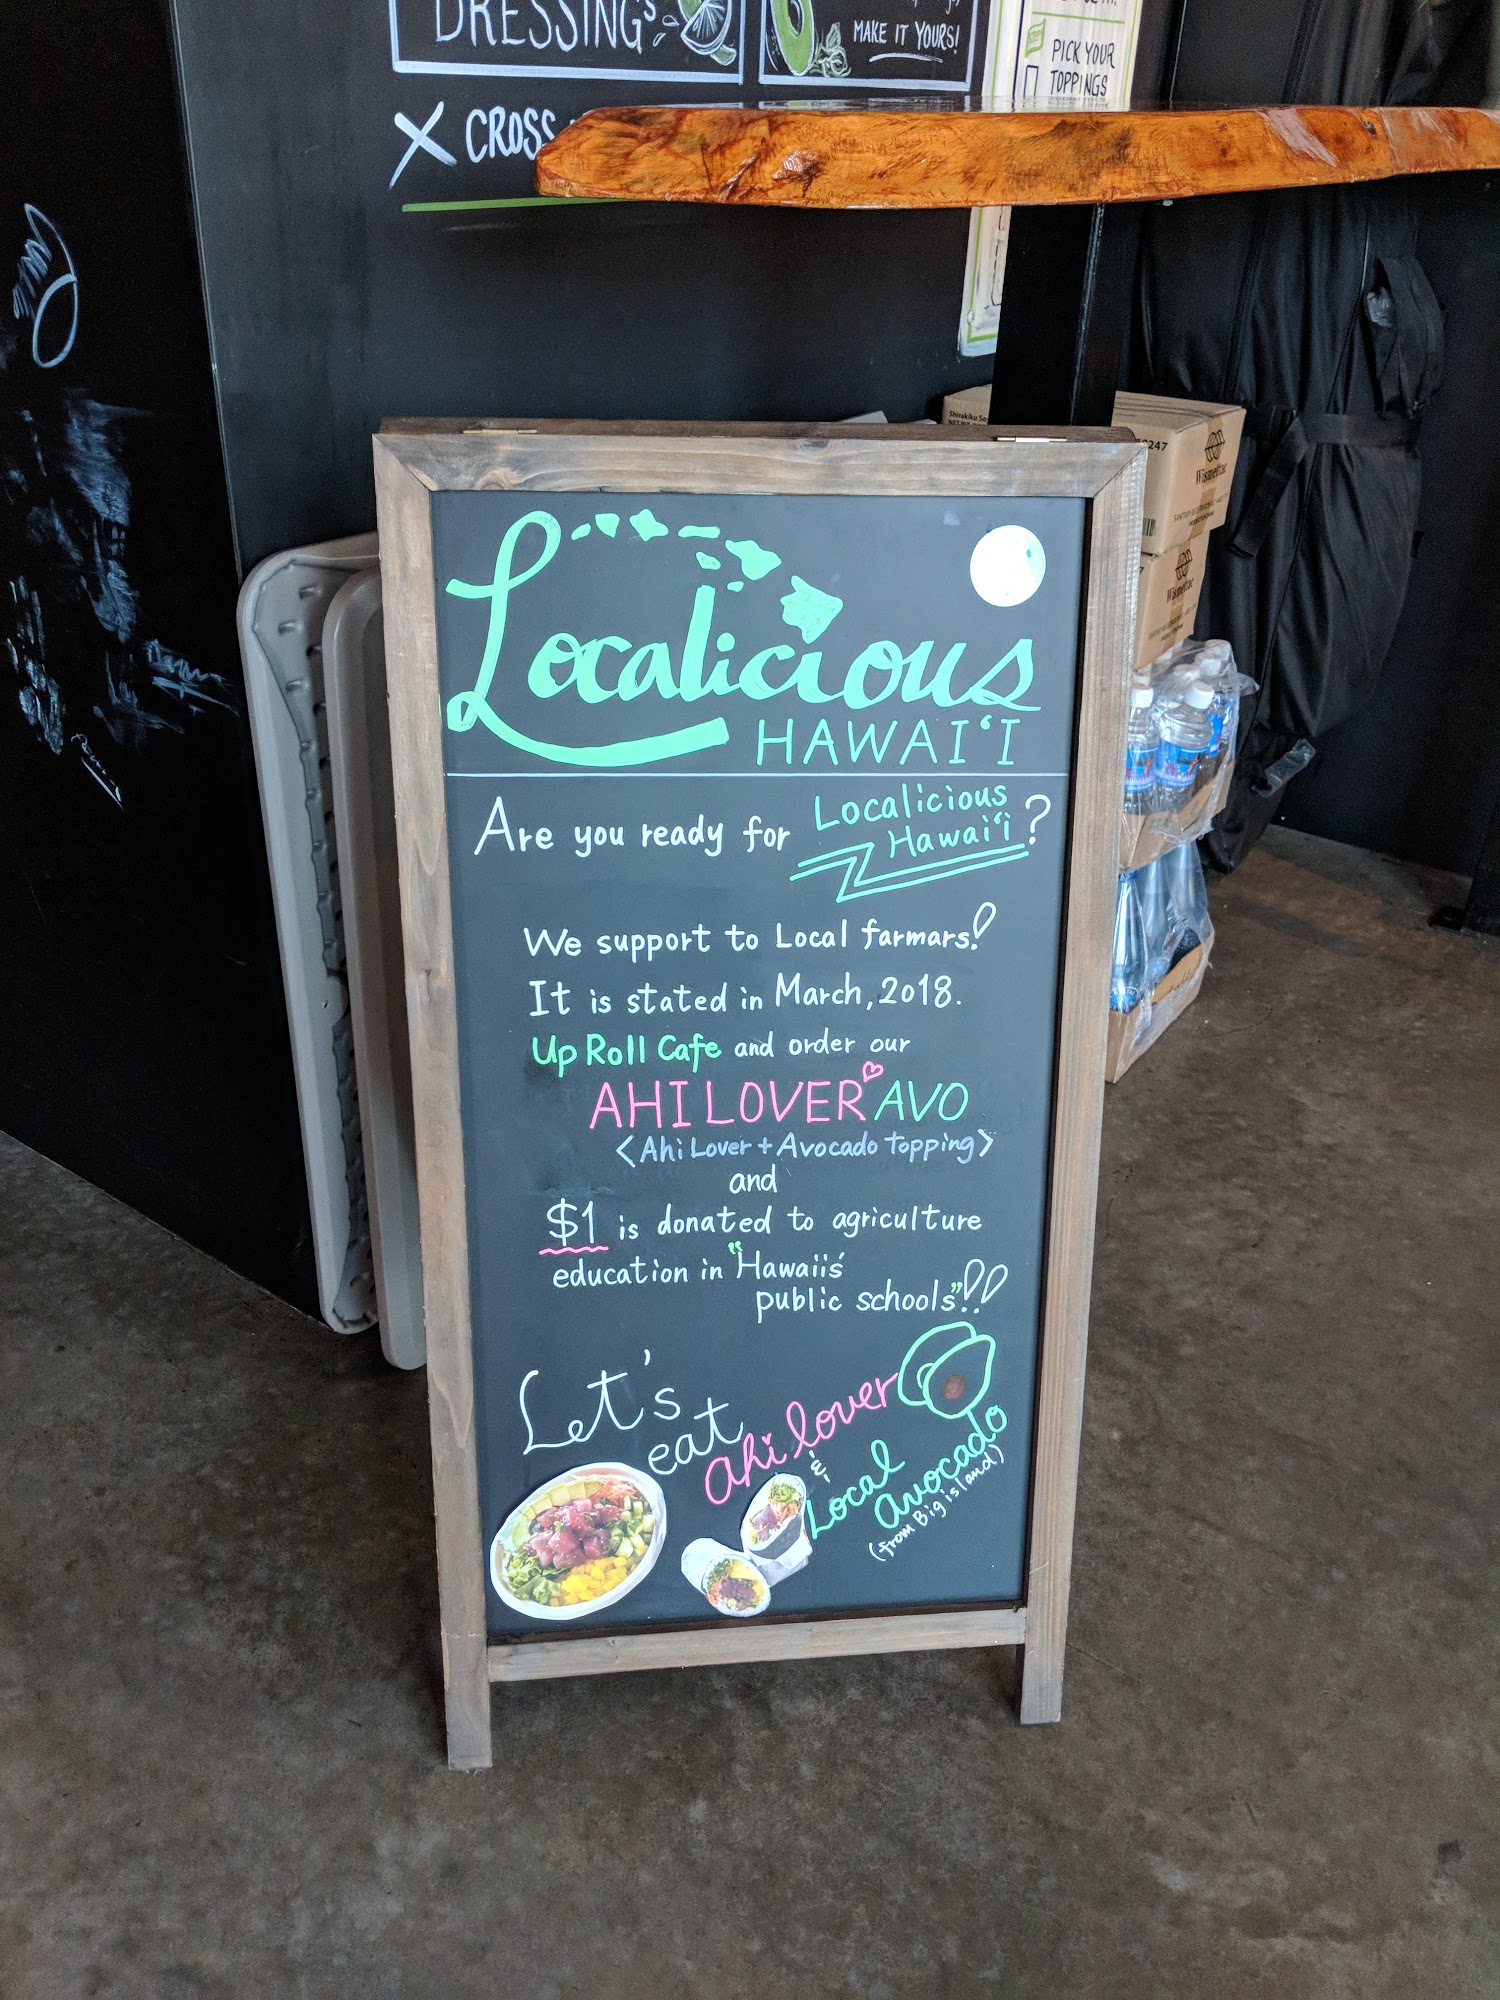 DRESSINGs
MAKE IT YOURS!
PICK YOUR
TOPPINGS
X CROSS
Shirakiku
247
Wismettac
Wismettac
Localicious
HAWAI‘I
Are you ready for Localicious
Hawai‘i?
We support to Local farmars!
It is stated in March, 2018.
Up Roll Cafe and order our
AHI LOVER♡AVO
<Ahi Lover + Avocado topping>
and
$1 is donated to agriculture
education in "Hawaiis'
public schools"!!
Let's
eat
ahi lover
&
Local
avocado
(from Big island)